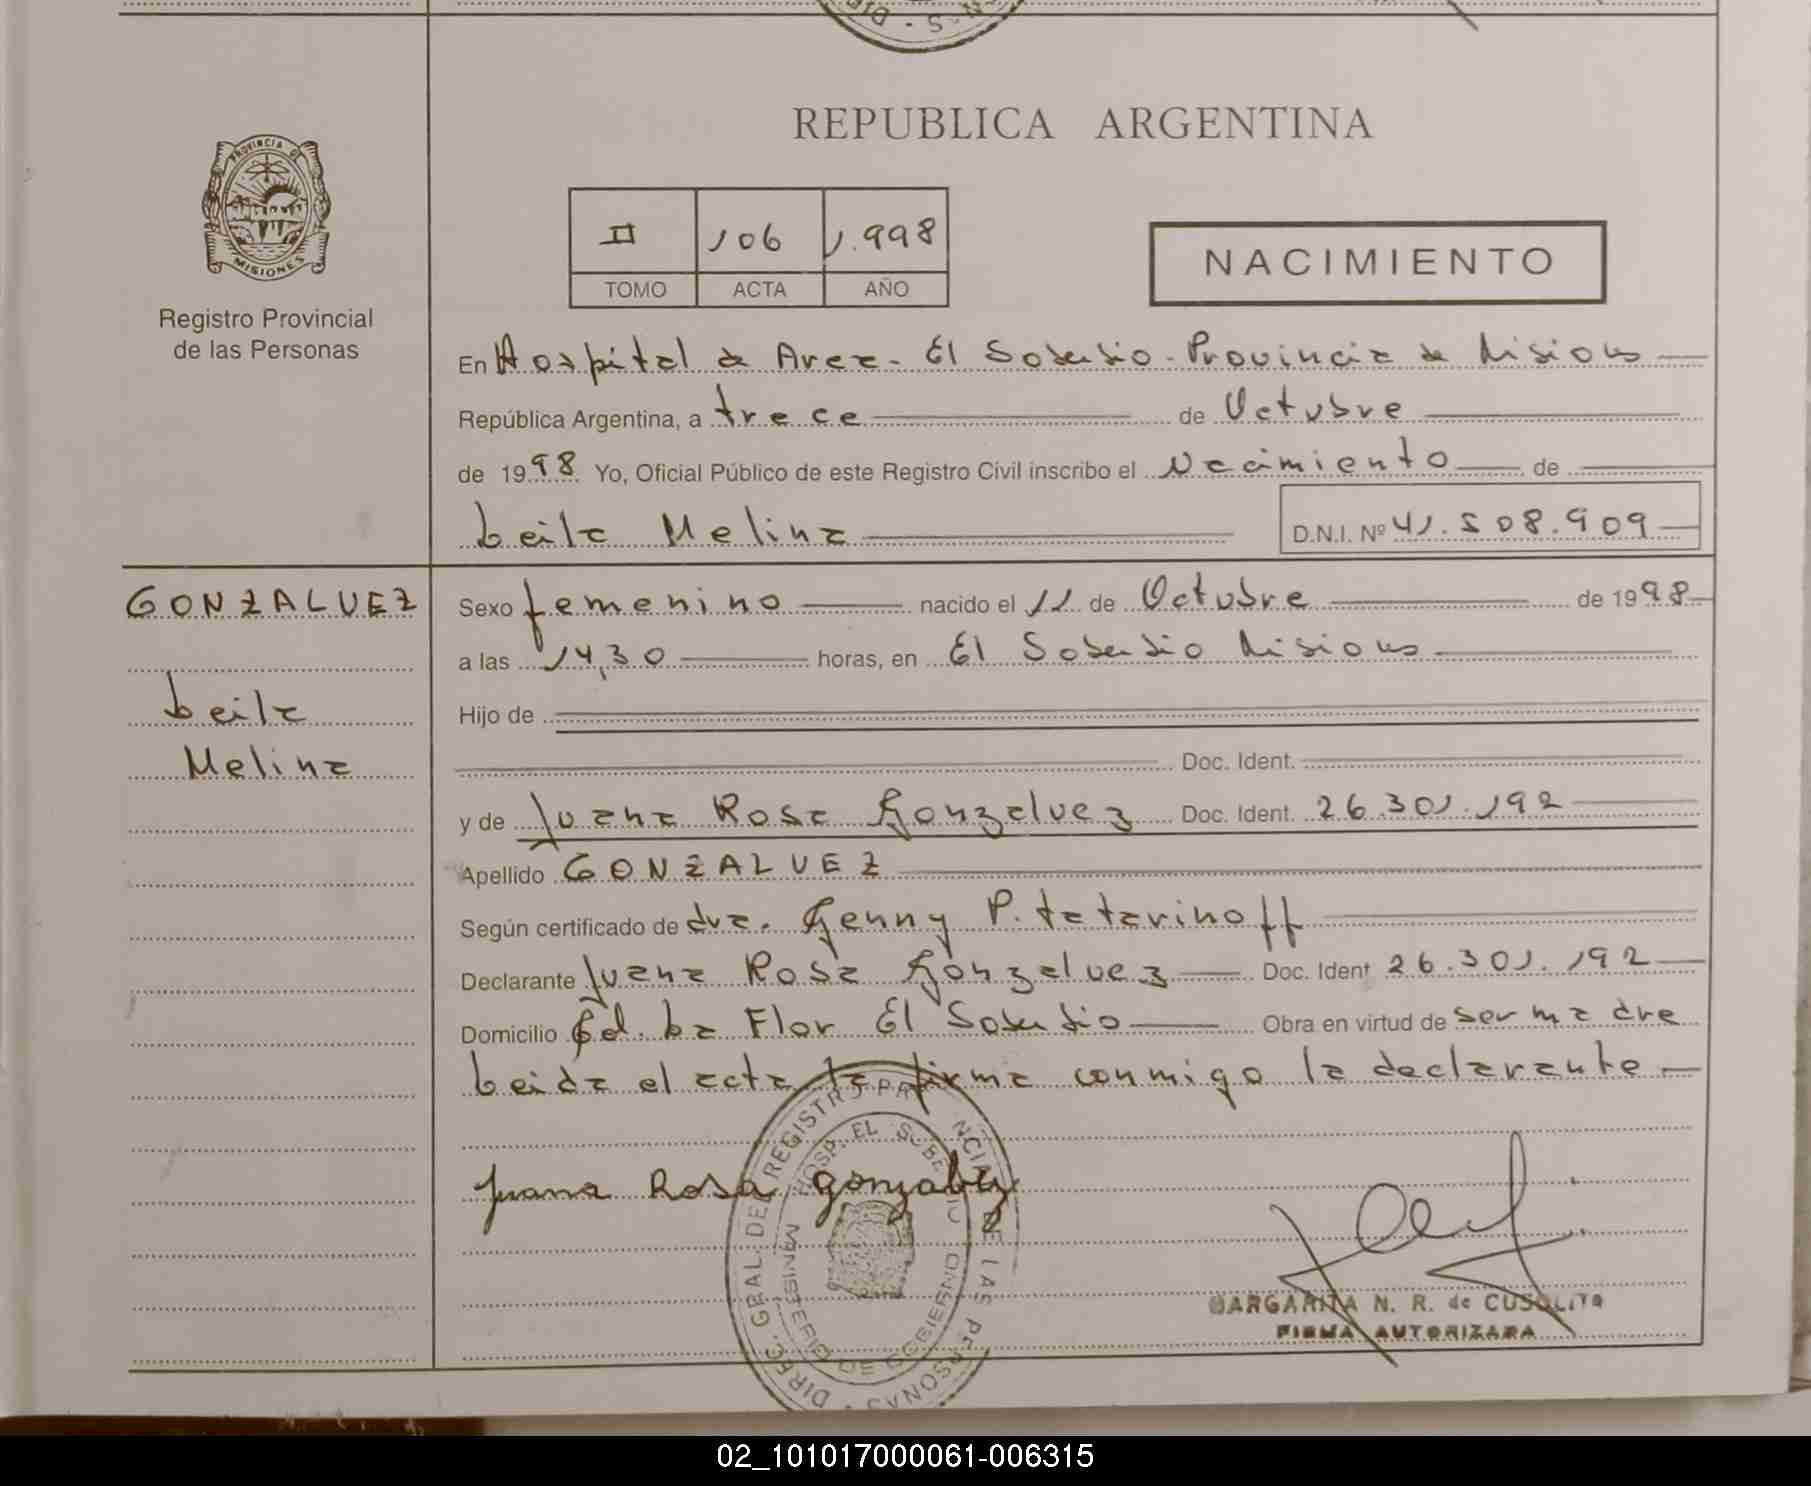 REPUBLICA ARGENTINA
PROVINCIA DE
MISIONES
Registro Provincial
de las Personas
II 106 1.998
TOMO ACTA AÑO
NACIMIENTO
En Hospital de Area - El Soberbio - Provincia de Misiones
República Argentina, a trece de Octubre
de 1998 Yo, Oficial Público de este Registro Civil inscribo el Nacimiento de
Leila Melina
D.N.I. Nº 41.508.909
GONZALVEZ
Leila
Melina
Sexo femenino nacido el 11 de Octubre de 1998
a las 14,30 horas, en El Soberbio Misiones
Hijo de
Doc. Ident.
y de Juana Rosa Gonzalvez Doc. Ident. 26.301.192
Apellido GONZALVEZ
Según certificado de dra. Genny P. tatarinoff
Declarante Juana Rosa Gonzalvez Doc. Ident 26.301.192
Domicilio Cd. La Flor El Soberbio Obra en virtud de ser madre
Leida el acta la firma conmigo la declarante
Juana Rosa gonzalvez
DIREC. GRAL. DEL REGISTRO PROVINCIAL DE LAS PERSONAS
HOSP. EL SOBERBIO
MINISTERIO DE GOBIERNO
MARGARITA N. R. de CUSOLITO
FIRMA AUTORIZADA
02_101017000061-006315